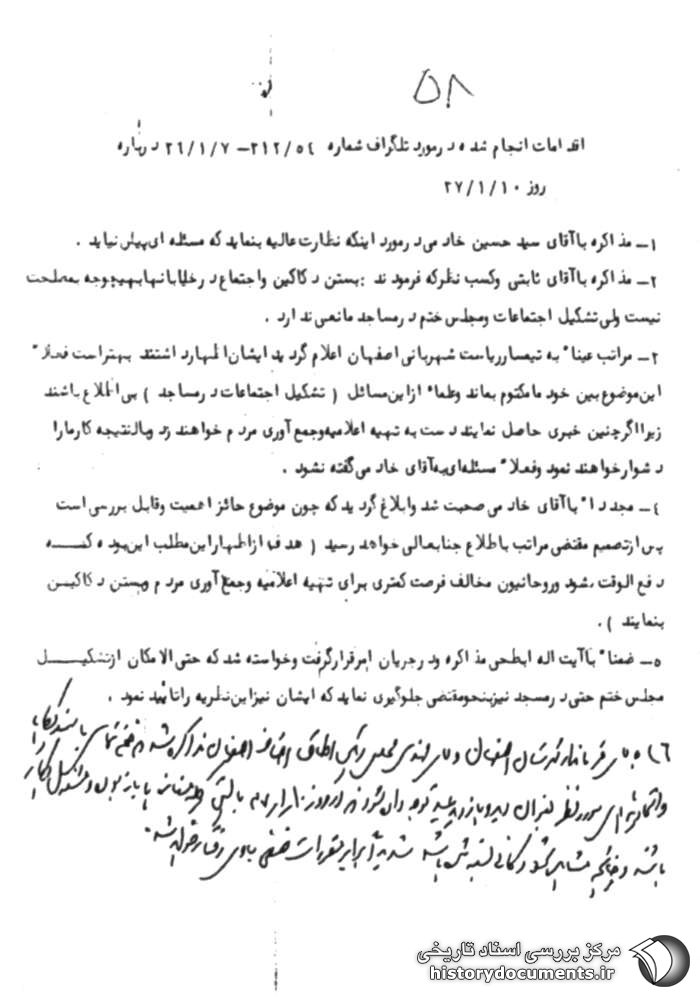 ۵۸
اقدامات انجام شده در مورد تلگراف شماره ۲۱۲/۵۴ – ۲۶/۱/۷ درباره
روز ۲۷/۱/۱۰
۱ – مذاکره با آقای سید حسین خادمی در مورد اینکه نظارت عالیه بنماید که مسئله ای پیش نیاید .
۲ – مذاکره با آقای ثابتی وکسب نظر که فرمودند : بستن دکاکین واجتماع در خیابانها بهیچوجه بمصلحت
نیست ولی تشکیل اجتماعات ومجلس ختم در مساجد مانعی ندارد .
۳ – مراتب عینا" به تیمسار ریاست شهربانی اصفهان اعلام گردید ایشان اظهار داشتند بهتر است فعلا"
این موضوع بین خود ما مکتوم بماند وعلما" از این مسائل ( تشکیل اجتماعات در مساجد ) بی اطلاع باشند
زیرا اگر چنین خبری حاصل نمایند دست به تهیه اعلامیه وجمع آوری مردم خواهند زد وبالنتیجه کار ما را
دشوار خواهند نمود وفعلا" مسئله ای به آقای خادمی گفته نشود .
۴ – مجددا" با آقای خادمی صحبت شد وابلاغ گردید که چون موضوع حائز اهمیت وقابل بررسی است
پس از تصمیم مقتضی مراتب باطلاع جنابعالی خواهد رسید ( هدف از اظهار این مطلب این بوده کــــه
دفع الوقت بشود وروحانیون مخالف فرصت کمتری برای تهیه اعلامیه وجمع آوری مردم وبستن دکاکیــن
بنمایند ) .
۵ – ضمنا" با آیت اله ابطحی مذاکره ودر جریان امر قرار گرفت وخواسته شد که حتی الامکان از تشکیــــل
مجلس ختم حتی در مسجد نیز بنحو مقتضی جلوگیری نماید که ایشان نیز این نظریه را تائید نمود .
۶) با فرماندار شهرستان اصفهان و رئیس اطاق اصناف اصفهان مذاکره شد
مورد نظر توجه شود در روز
باشند و چنانچه باشد برابر مقررات صنفی با وی رفتار خواهد شد .
مرکز بررسی اسناد تاریخی
historydocuments.ir